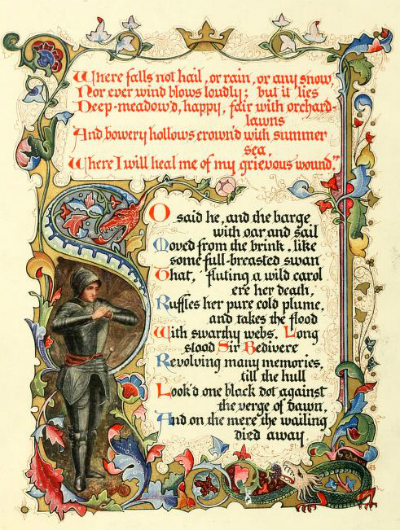 Where falls not hail, or rain, or any snow,
Nor ever wind blows loudly: but it lies
Deep-meadow'd, happy, fair with orchard-
lawns
And bowery hollows crown'd with summer
sea,
Where I will heal me of my grievous wound."
SO said he, and the barge
with oar and sail
Moved from the brink, like
some full-breasted swan
That, fluting a wild carol
ere her death,
Ruffles her pure cold plume,
and takes the flood
With swarthy webs. Long
stood Sir Bedivere
Revolving many memories,
till the hull
Look'd one black dot against
the verge of dawn,
And on the mere the wailing
died away.